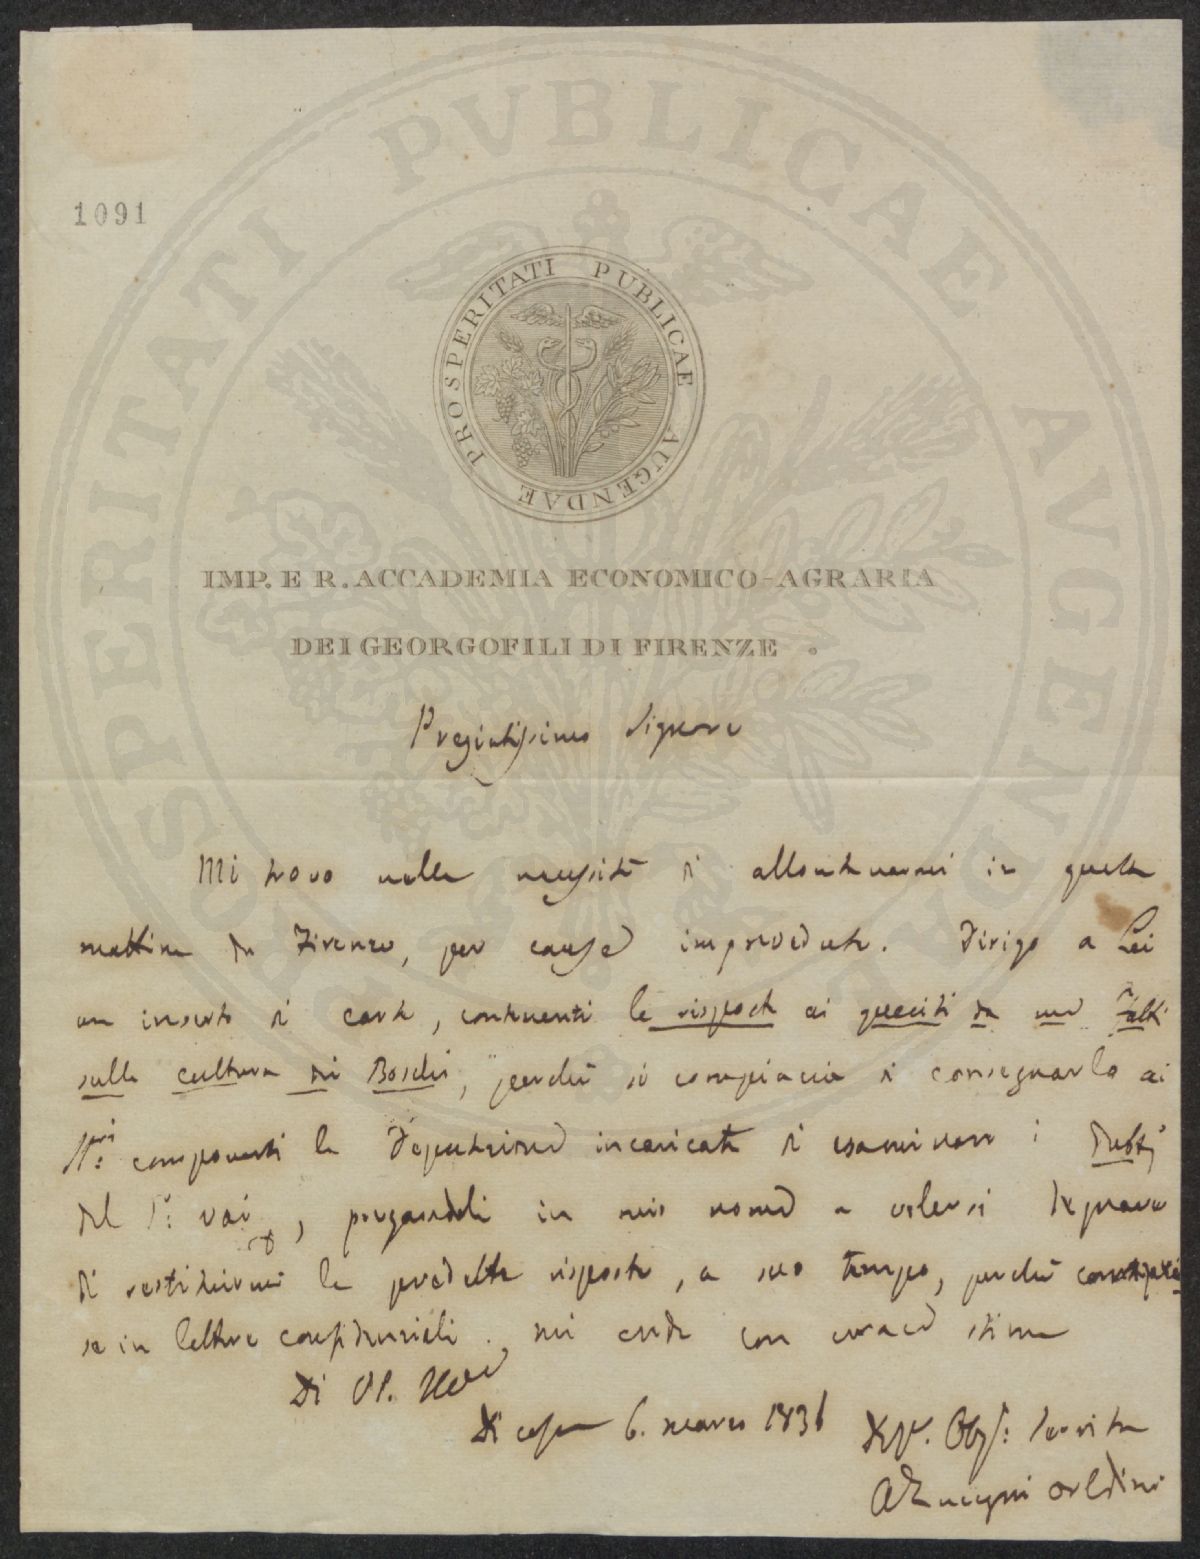 PROSPERITATI PVBLICAE AVGENDAE
1091
PROSPERITATI PUBLICAE AUGENDAE
IMP. E R. ACCADEMIA ECONOMICO-AGRARIA
DEI GEORGOFILI DI FIRENZE
Pregiatissimo Signore
Mi trovo nella necessità di allontanarmi in questa
mattina da Firenze, per cause imprevedute. Dirigo a Lei
un inserto di carte, contenenti le risposte ai quesiti da me fatti
sulla cultura dei Boschi, perché si compiaccia di consegnarlo ai
SS.ri componenti la Deputazione incaricata di esaminare i
del Sr: Vai, pregandoli in mio nome a volersi degnare
di restituirmi le predette risposte, a suo tempo, perché
se in lettere confidenziali. Mi creda con verace stima
Di VS.
Di casa 6. marzo 1836
Dev. Obb: Servitore
AZuccagni Orlandini